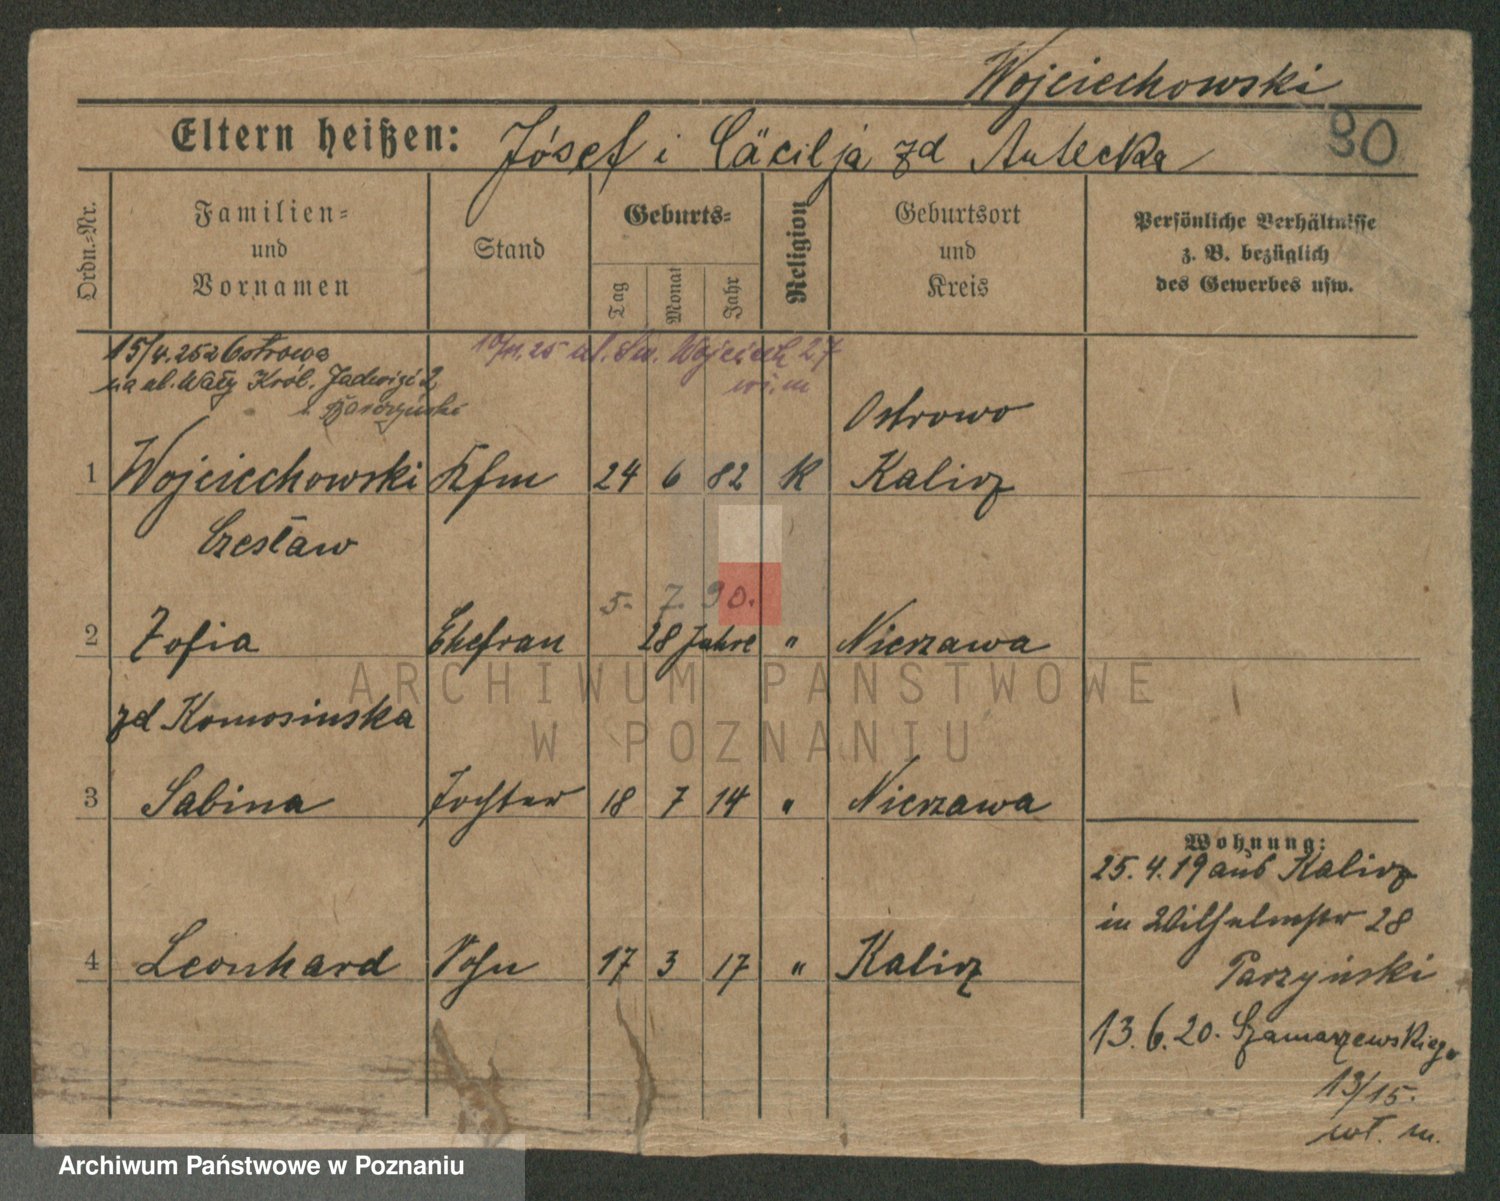 Wojciechowski
Eltern heißen: Józef i Cäcilja zd Antecka
90
Ordn.-Nr.
Familien-
und
Vornamen
Stand
Geburts-
Tag
Monat
Jahr
Religion
Geburtsort
und
Kreis
Persönliche Verhältnisse
z. B. bezüglich
des Gewerbes usw.
15/4.25 z Ostrowa
na ul. Wały Król. Jadwigi 2
10/11.25 ul. Św. Wojciech 27
wł. m
Ostrowo
1 Wojciechowski Kfm 24 6 82 K Kalisz
Czesław
5. 7. 90.
2 Zofia Ehefrau 28 Jahre " Nierzawa
zd Komosinska
3 Sabina Tochter 18 7 14 " Nierzawa
4 Leonhard Sohn 17 3 17 " Kalisz
Wohnung:
25.4.19 aus Kalisz
in Wilhelmstr 28
Parzyński
13.6.20. Szamarzewskiego
13/15.
wł. m.
ARCHIWUM PAŃSTWOWE
W POZNANIU
Archiwum Państwowe w Poznaniu